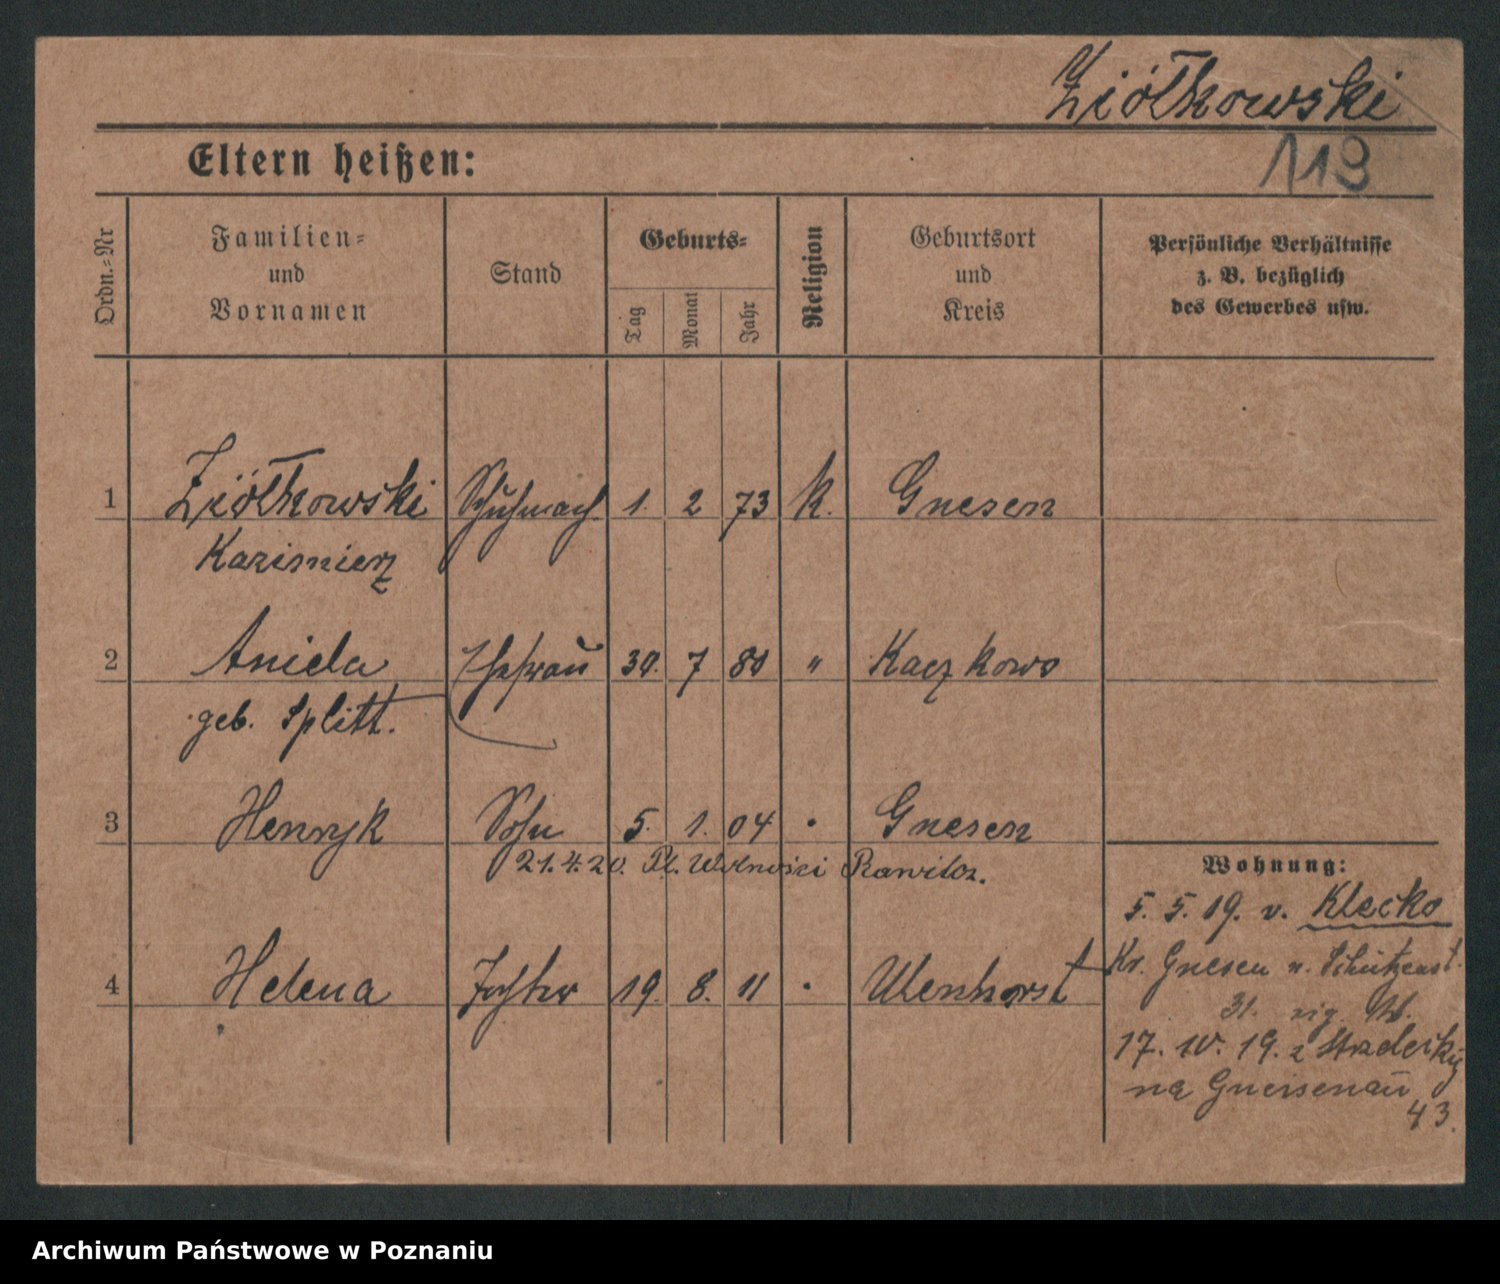 Ziółkowski
119
Eltern heißen:
Ordn.=Nr
Familien=
und
Vornamen
Stand
Geburts=
Tag
Monat
Jahr
Religion
Geburtsort
und
Kreis
Persönliche Verhältnisse
z. B. bezüglich
des Gewerbes usw.
1 Ziółkowski Schuhmach. 1. 2 73 k. Gnesen
Kazimierz
2 Aniela Ehefrau 30. 7 80 " Kaczkowo
geb. Splitt.
3 Henryk Sohn 5. 1. 04 " Gnesen
21.4.20. Pl. Wolności Rawicz.
4 Helena Tochter 19. 8. 11 " Ulenhorst
Wohnung:
5. 5. 19. v. Klecko
Kr. Gnesen n. Schützenst.
31.
17. 10. 19. z Strzelecky
na Gneisenau
43.
Archiwum Państwowe w Poznaniu